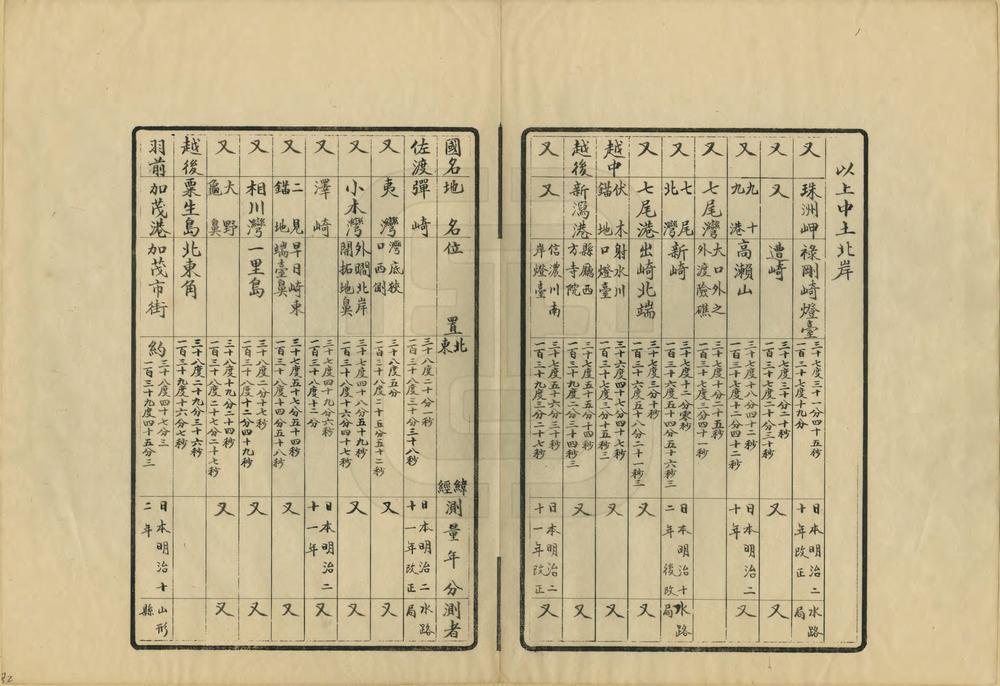 以上中土北岸
又 珠洲岬 祿剛崎燈臺 三十七度三十一分四十五秒 一百三十七度十九分 日本明治二十年改正 水路局
又 又 遭崎 三十七度三十分二十秒 一百三十七度二十分三十秒 又
又 九十九港 高瀨山 三十七度十八分四十二秒 一百三十七度十二分四十二秒 日本明治二十年 又
又 七尾灣 大口外之外渡險礁 三十七度十二分二十五秒 一百三十七度三分四十一秒
又 七尾北灣 新崎 三十七度十二分零秒 一百三十六度五十四分五十六秒三 日本明治十二年後改 水路局
又 七尾港 出崎北端 三十七度三分十秒 一百三十六度五十八分二十一秒三 又 又
越中 伏木錨地 射水川口燈臺 三十六度四十七分四十七秒 一百三十七度三分十五秒三 又 又
越後 新瀉港 縣廳西方寺院 三十七度五十五分十四秒 一百三十九度二分三十四秒三 又 又
又 又 信濃川南岸燈臺 三十七度五十六分三秒 一百三十九度三分二十七秒 日本明治二十一年改正 又
國名 地名 位置 北緯 東經 測量年分 測者
佐渡 彈崎 三十八度二十分一秒 一百三十八度三十分三十八秒 日本明治二十一年改正 水路局
又 夷灣 灣底狹口西側 三十八度五分 一百三十八度二十五分五十二秒 又 又
又 小木灣 外澗北岸開拓地鼻 三十七度四十八分五十九秒 一百三十八度十六分四十七秒 又 又
又 澤崎 三十七度四十九分六秒 一百三十八度十二分 日本明治二十一年 又
又 二見錨地 早日崎東端臺鼻 三十七度五十七分五十四秒 一百三十八度十四分五十八秒 又 又
又 相川灣 一里島 三十八度二分十七秒 一百三十八度十二分四十九秒 又 又
又 大野龜鼻 三十八度十九分二十四秒 一百三十八度二十七分二十七秒 又 又
越後 粟生島 北東角 三十八度二十九分三十六秒 一百三十九度十六分七秒
羽前 加茂港 加茂市街 約三十八度四十七分三 一百三十九度四十五分三 日本明治十二年 山形縣
82